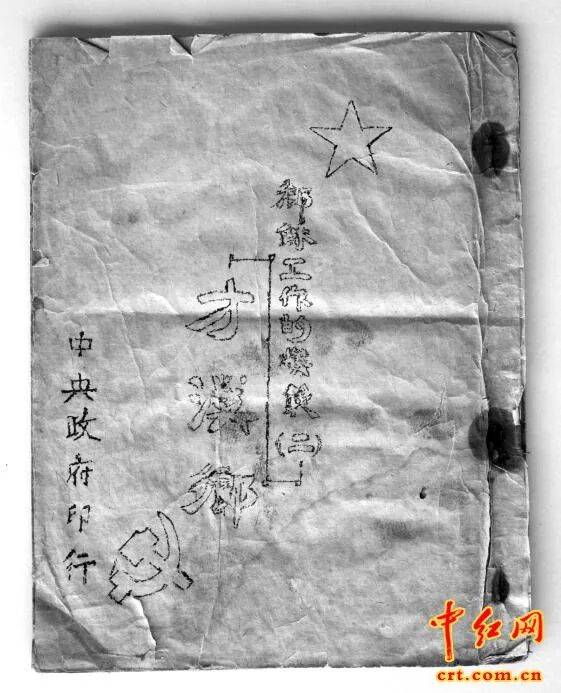 鄉蘇工作的模範(二)
才溪鄉
中央政府印行
中红网
crt.com.cn